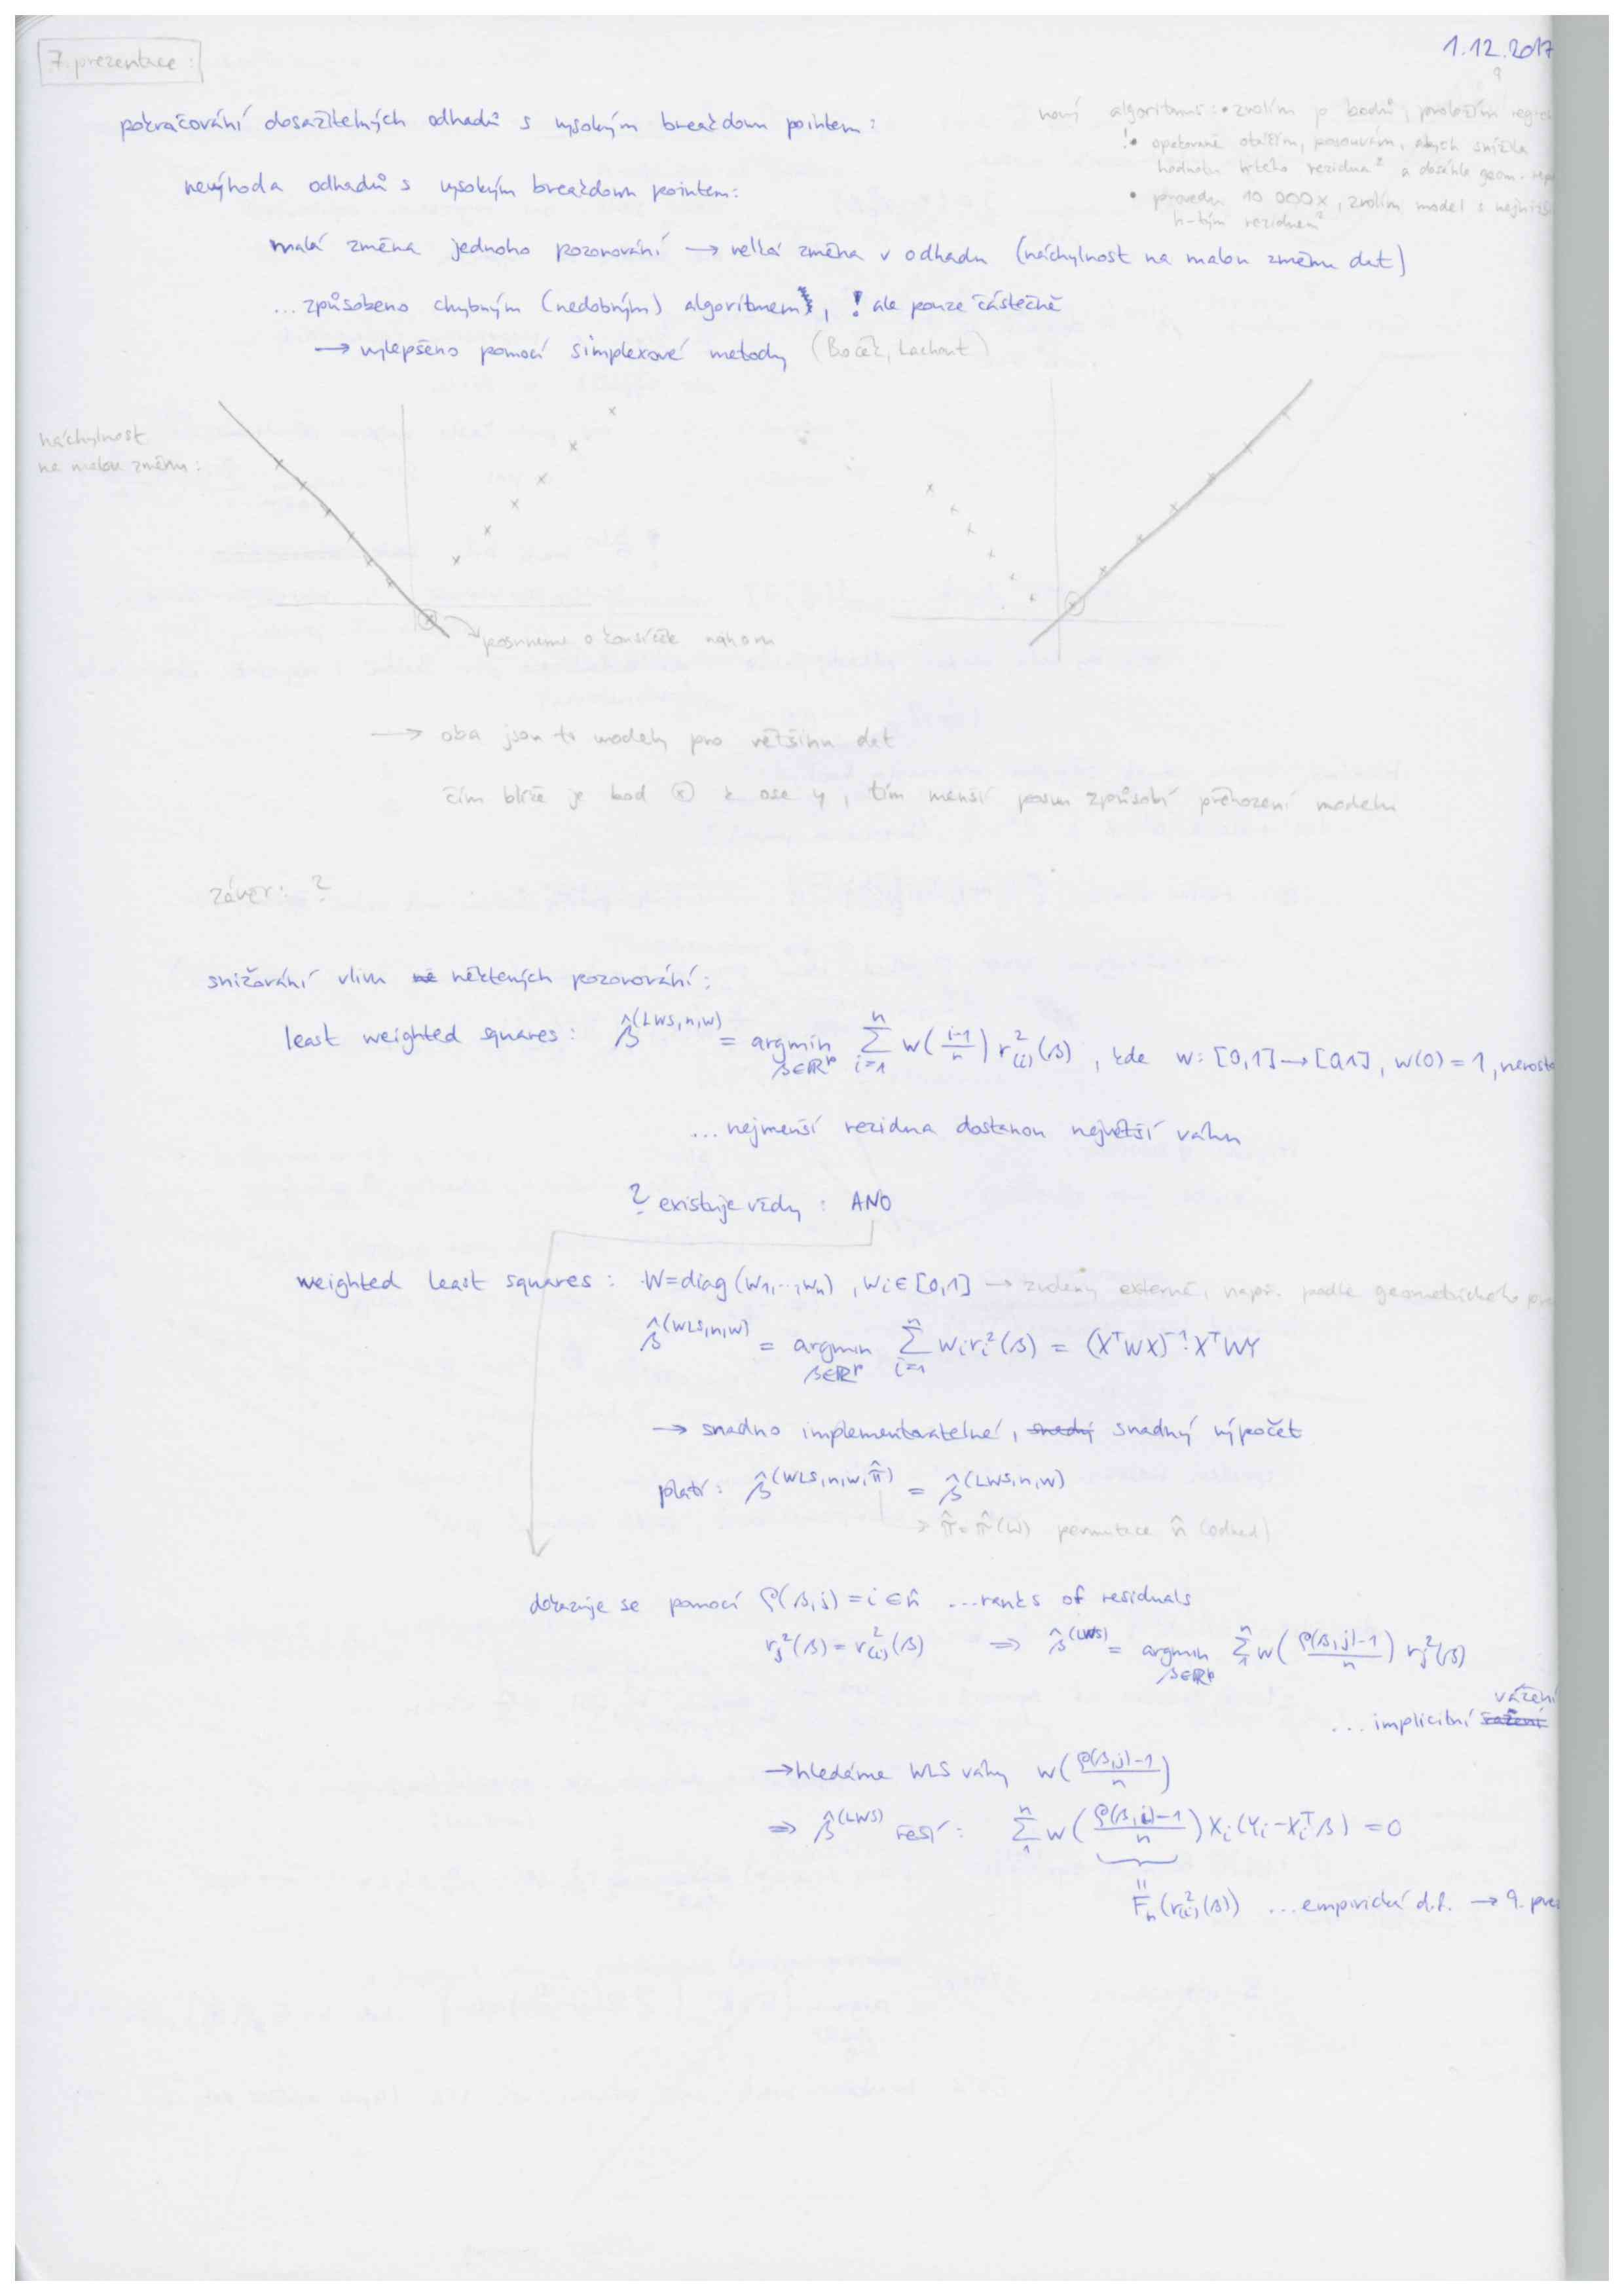 7. prezentace:
1.12.2017
pokračování dosažitelných odhadů s vysokým breakdown pointem:
nový algoritmus: • zvolím p bodů, proložím regres
! • opětovně otáčím, posouvám, abych snížila
hodnotu h-tého rezidua² a dosáhla geom.
• provedu 10 000x, zvolím model s nejnižš
h-tým reziduem²
nevýhoda odhadů s vysokým breakdown pointem:
malá změna jednoho pozorování → velká změna v odhadu (náchylnost na malou změnu dat)
... způsobeno chybným (nedobrým) algoritmem, ! ale pouze částečně
→ vylepšeno pomocí simplexové metody (Boček, Lachout)
náchylnost
na malou změnu:
posuneme o kousíček nahoru
→ oba jsou to modely pro většinu dat
čím blíže je bod ⓧ k ose y, tím menší posun způsobí přehození modelu
závěr: ?
snižování vlivu některých pozorování:
least weighted squares: β̂^(LWS,n,w) = argmin_{β∈ℝ^p} Σ_{i=1}^n w((i-1)/n) r²_(i)(β), kde w: [0,1]→[0,1], w(0) = 1, nerosto
... nejmenší rezidua dostanou největší váhu
? existuje vždy: ANO
weighted least squares: W=diag(w₁,...,wₙ), wᵢ∈[0,1] → zvoleny externě, např. podle geometrického
β̂^(WLS,n,w) = argmin_{β∈ℝ^p} Σ_{i=1}^n wᵢrᵢ²(β) = (XᵀWX)⁻¹·XᵀWY
→ snadno implementovatelné, snadný výpočet
platí: β̂^(WLS,n,w,π̂) = β̂^(LWS,n,w)
→ π̂ = π̂(w) permutace n̂ (odhad)
dokazuje se pomocí ρ(β,j) = i ∈ n̂ ...ranks of residuals
rⱼ²(β) = r²_(i)(β) ⇒ β̂^(LWS) = argmin_{β∈ℝ^p} Σ_1^n w((ρ(β,j)-1)/n) rⱼ²(β)
... implicitní vážení
→ hledáme WLS váhy w((ρ(β,j)-1)/n)
⇒ β̂^(LWS) řeší: Σ_1^n w((ρ(β,i)-1)/n) Xᵢ(Yᵢ-Xᵢᵀβ) = 0
= Fₙ(r²_(i)(β)) ...empirická d.f. → 9. prez